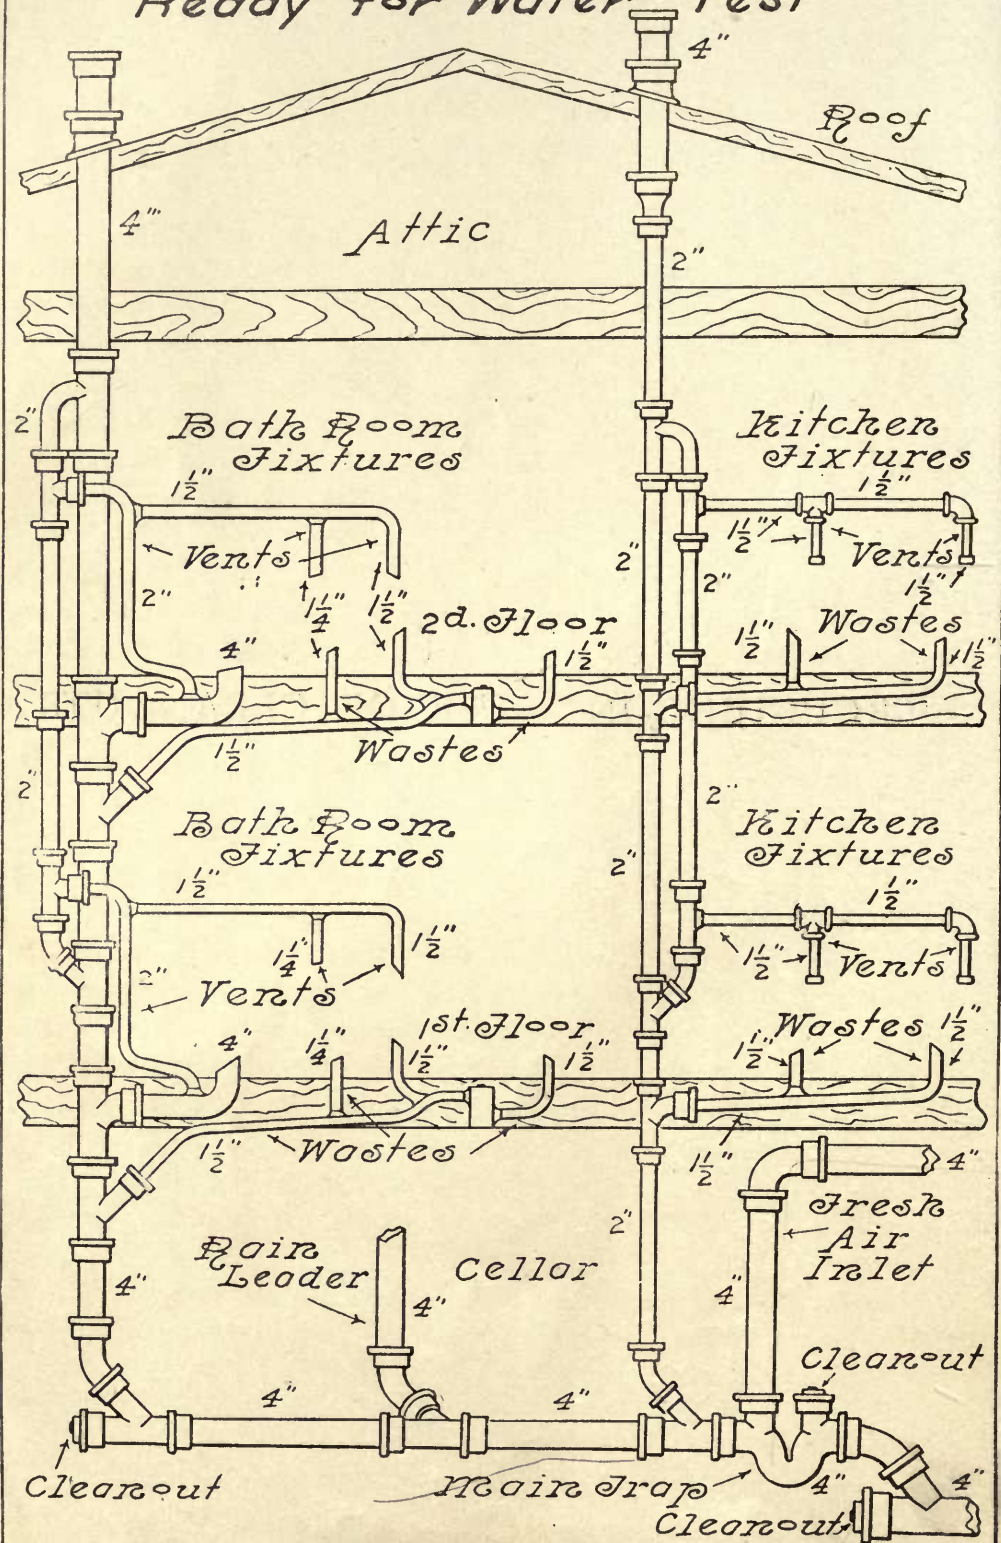 Ready for Water Test
4"
Roof
4"
Attic
2"
2"
Bath Room
Fixtures
Kitchen
Fixtures
1 1/2"
1 1/2"
1 1/2"
Vents
Vents
2"
2"
2"
1 1/4"
1 1/2"
1 1/2"
2d. Floor
Wastes
4"
1 1/2"
1 1/2"
1 1/2"
1 1/2"
Wastes
2"
2"
Bath Room
Fixtures
Kitchen
Fixtures
2"
1 1/2"
1 1/2"
1 1/4"
1 1/2"
1 1/2"
Vents
2"
Vents
1st. Floor
Wastes
1 1/2"
4"
1 1/4"
1 1/2"
1 1/2"
1 1/2"
1 1/2"
Wastes
1 1/2"
4"
2"
Fresh
Air
Inlet
Rain
Leader
Cellar
4"
4"
4"
Cleanout
4"
4"
Cleanout
Main Trap
4"
4"
Cleanout